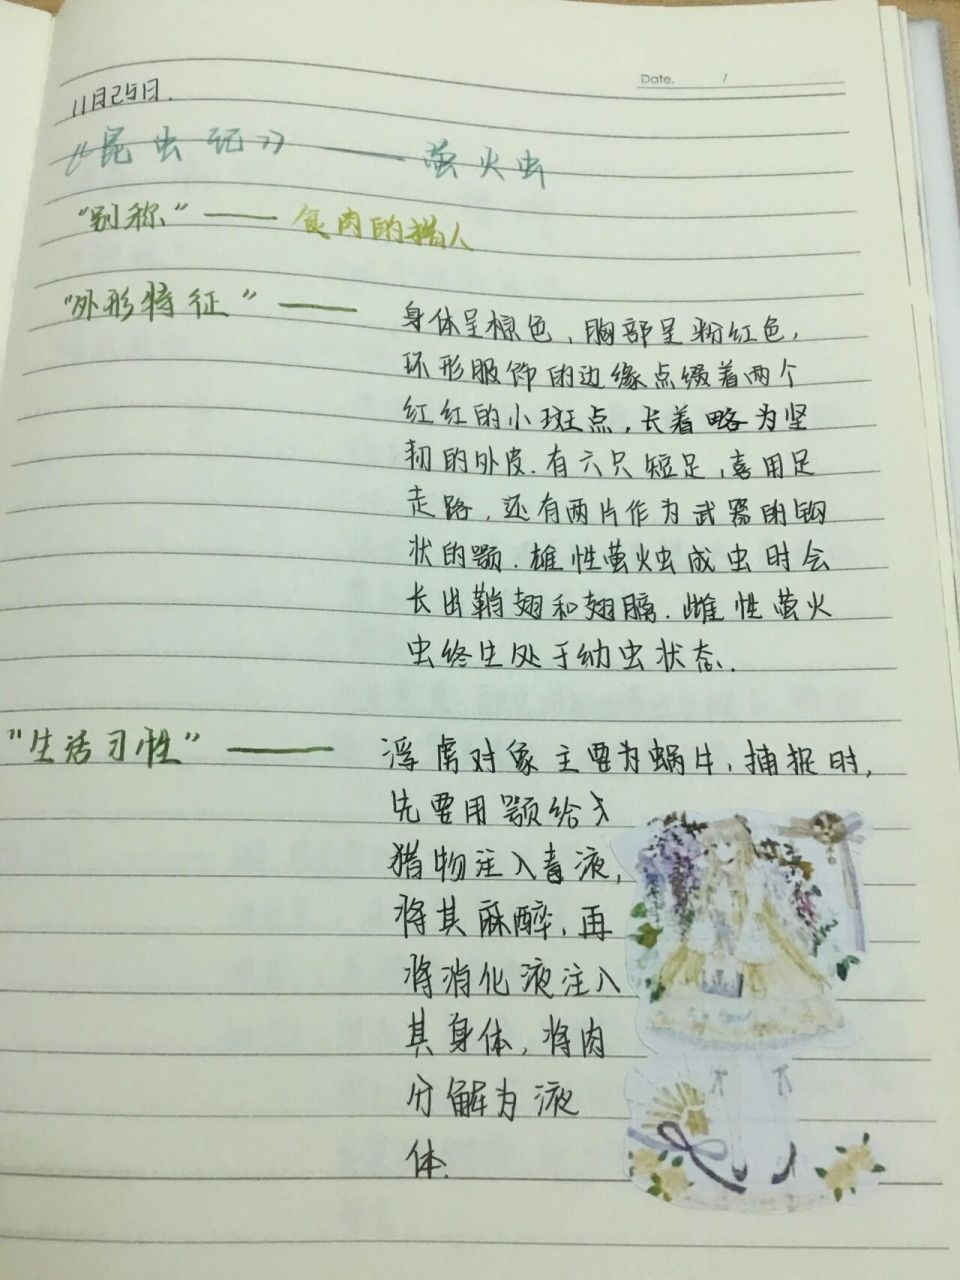 Date. /
11月25日.
《昆虫记》——萤火虫
"别称"——食肉的猎人
"外形特征"——身体呈棕色,胸部呈粉红色,
环形服饰的边缘点缀着两个
红红的小斑点,长着略为坚
韧的外皮.有六只短足,喜用足
走路,还有两片作为武器的钩
状的颚.雄性萤火虫成虫时会
长出鞘翅和翅膀.雌性萤火
虫终生处于幼虫状态.
"生活习性"——对象主要为蜗牛,捕捉时,
先要用颚给
猎物注入毒液,
将其麻醉,再
将消化液注入
其身体,将肉
分解为液
体.